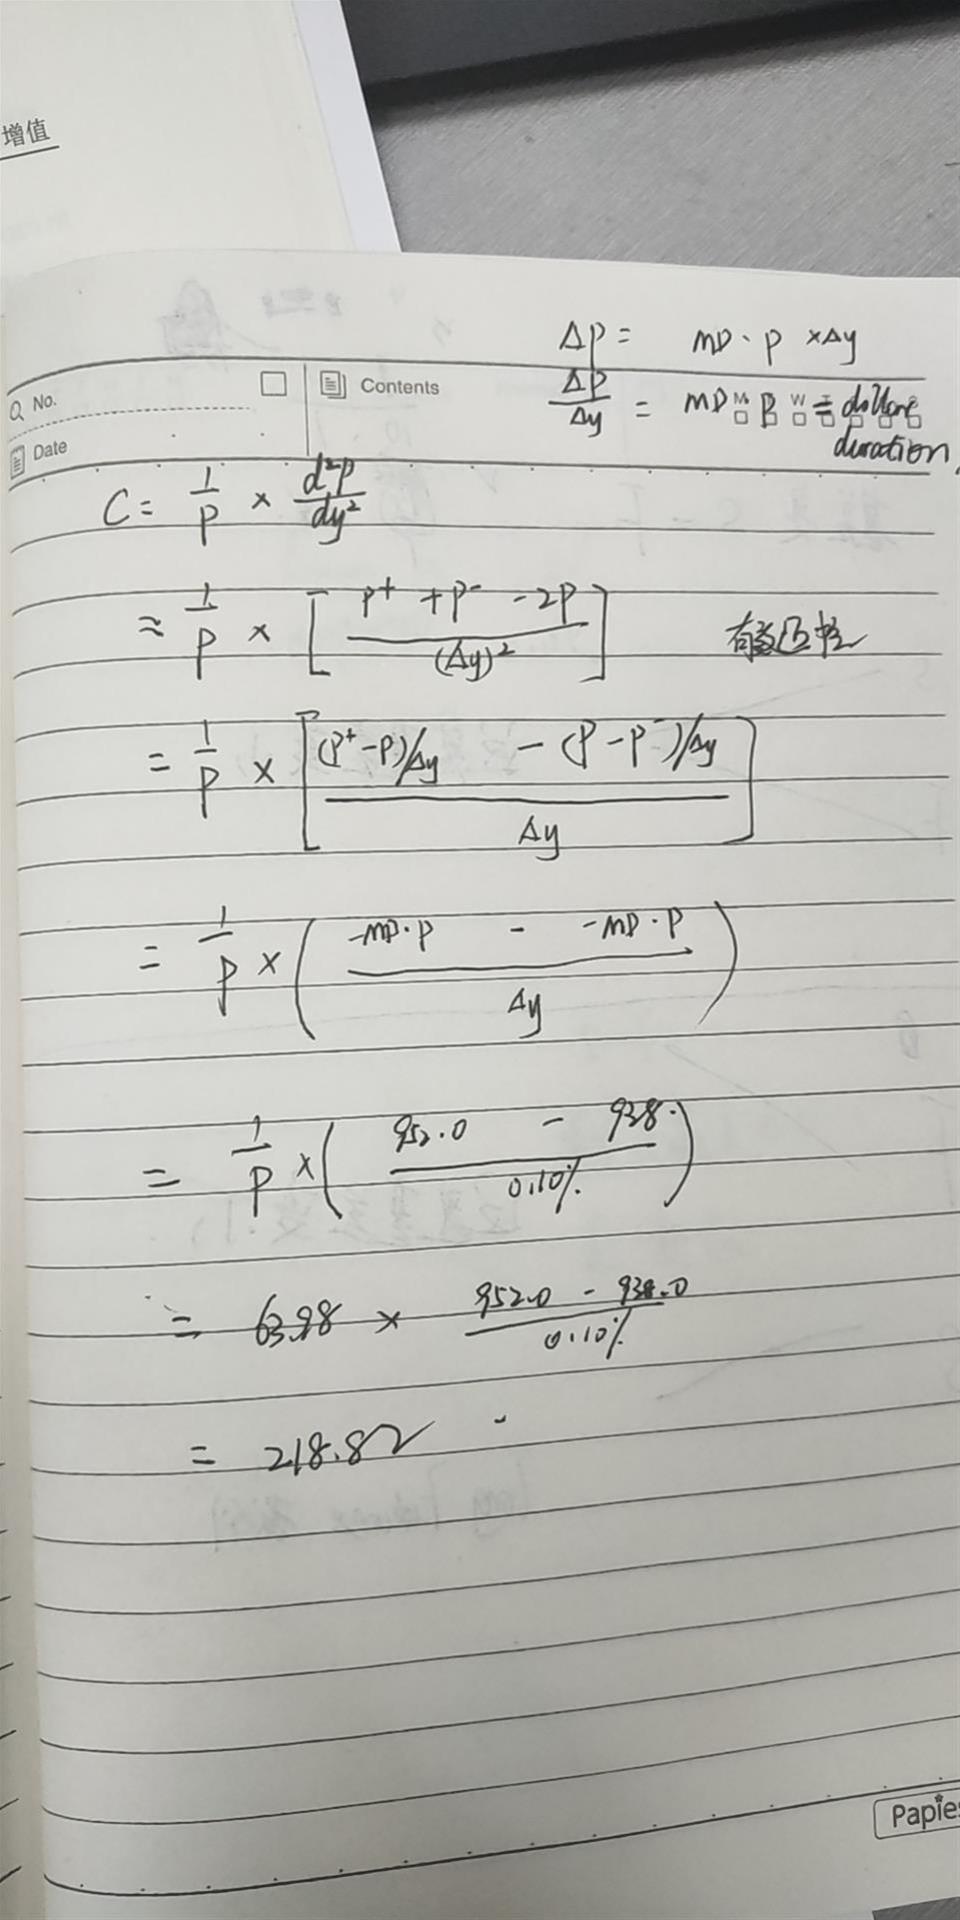 增值
ΔP = MD · P × Δy
No.
Contents
ΔP/Δy = MD P = dollar
duration
Date
C = 1/P × d²P/dy²
≈ 1/P × [(P⁺ + P⁻ - 2P)/(Δy)²] 有效凸性
= 1/P × [((P⁺ - P)/Δy - (P - P⁻)/Δy)/Δy]
= 1/P × ((-MD·P - -MD·P)/Δy)
= 1/P × ((952.0 - 938.)/0.10%)
= 63.98 × (952.0 - 938.0)/0.10%
= 218.82
Papie